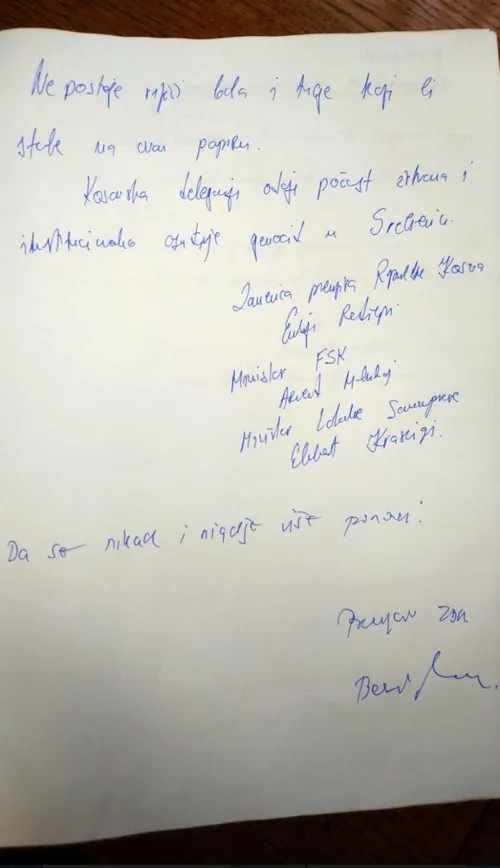 Ne postoje riječi bola i tuge koji bi
stale na ovom papiru.
Kosovska delegacija odaje počast žrtvama i
institucionalno osuđuje genocid u Srebrenici.
Zamenica premijera Republike Kosova
Emilija Redžepi
Ministar FSK
Armend Mehaj
Ministar Lokalne Samouprave
Elbert Krasniqi.
Da se nikad i nigdje više ponovi!